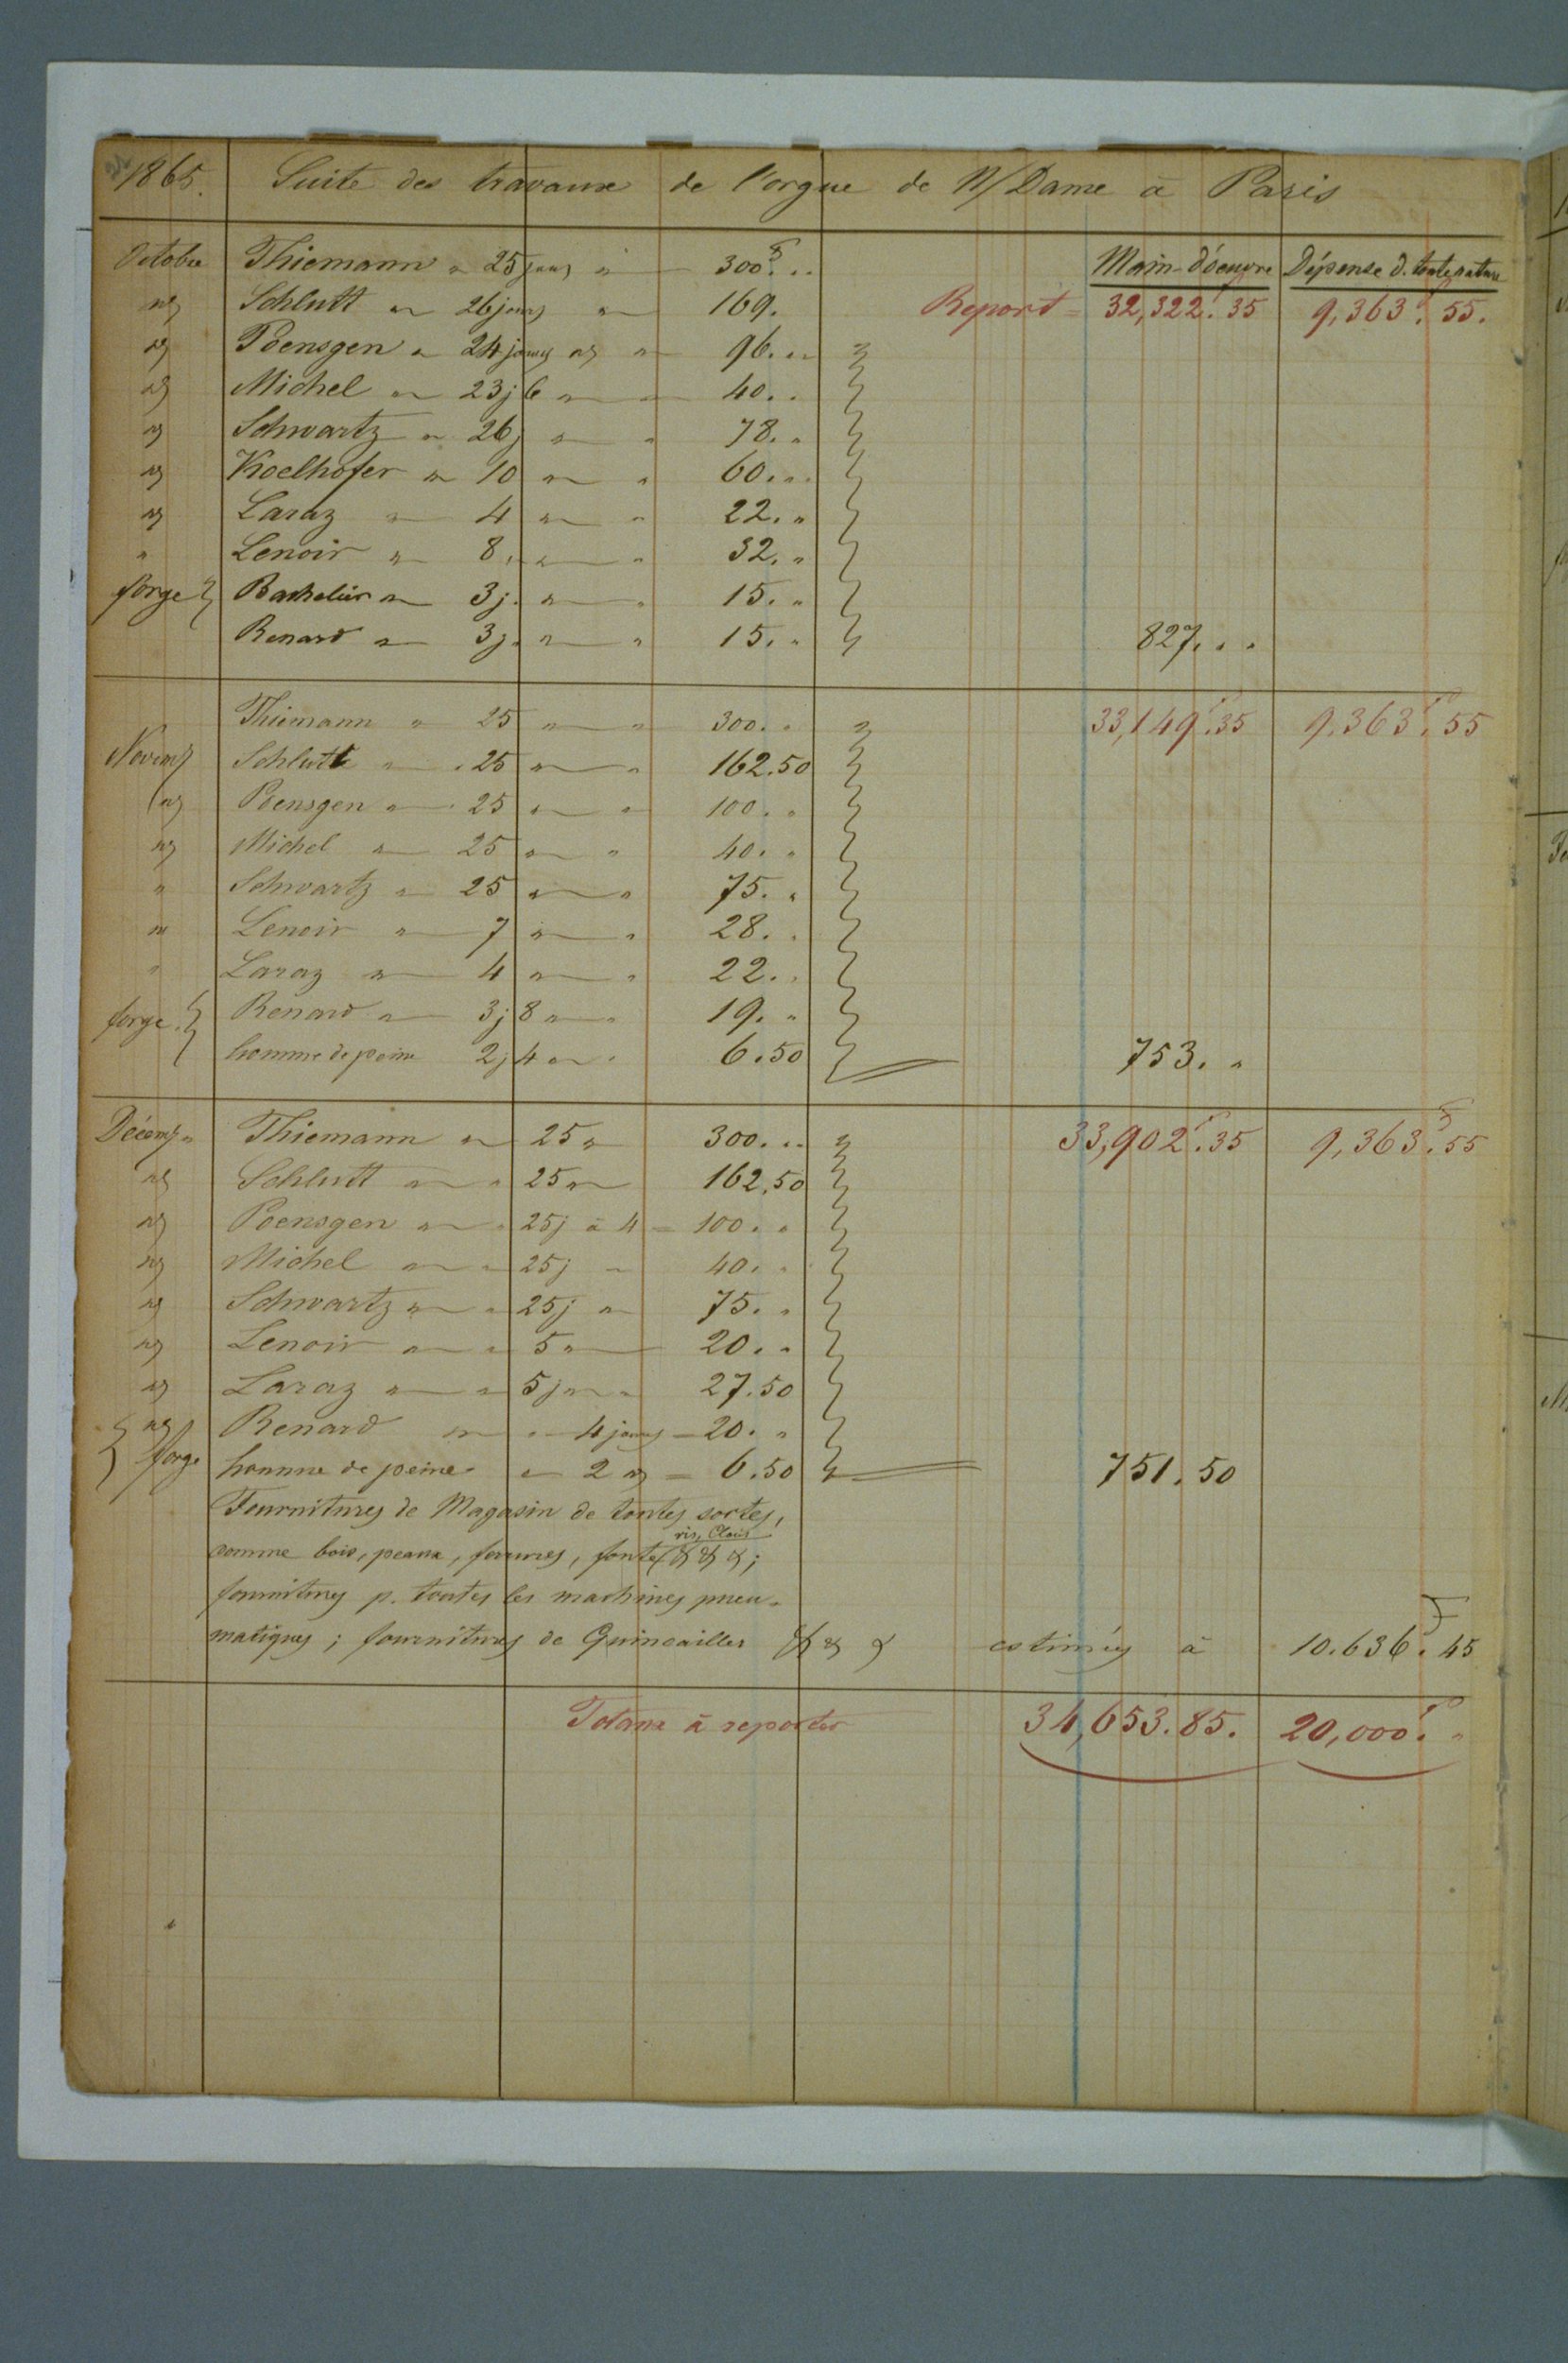 1865. Suite des travaux de l'orgue de N/Dame à Paris
Main d'oeuvre Dépense d. toute nature
Octobre Thiemann " 25 jours " 300f. "
" Schlutt " 26 jours " 169. Report = 32,322f.35 9,363f.55.
" Poensgen " 24 jours " " 96. "
" Michel " 23j 6 " " 40. "
" Schwartz " 26j " " 78. "
" Koelhofer " 10 " " 60. "
" Laraz " 4 " " 22. "
" Lenoir " 8. " " 32. "
forge } Bachelier " 3j. " " 15. "
Renard " 3j. " " 15. " 827. "
Thiemann " 25 " " 300. " 33,149f.35 9,363f.55
Novemb Schlutt " 25 " " 162.50
" Poensgen " 25 " " 100. "
" Michel " 25 " " 40. "
" Schwartz " 25 " " 75. "
" Lenoir " 7 " " 28. "
" Laraz " 4 " " 22. "
forge. } Renard " 3j 8 " " 19. "
homme de peine 2j 4 " " 6.50 753. "
Décemb " Thiemann " 25 " 300. " 33,902f.35 9,363f.55
" Schlutt " " 25 " 162.50
" Poensgen " " 25j à 4 = 100. "
" Michel " " 25j " 40. "
" Schwartz " " 25j " 75. "
" Lenoir " " 5 " 20. "
" Laraz " " 5j " " 27.50
" Renard " " 4 jours = 20. "
} forge homme de peine " 2 " = 6.50 751.50
Fournitures de Magasin de toutes sortes,
vis, Clous
comme bois, peaux, ferrures, fonte & & &;
fournitures p. toutes les machines pneu-
matiques; fournitures de Quincailler & & & estimées à 10.636F.45
Totaux à reporter 34,653.85. 20,000f. "